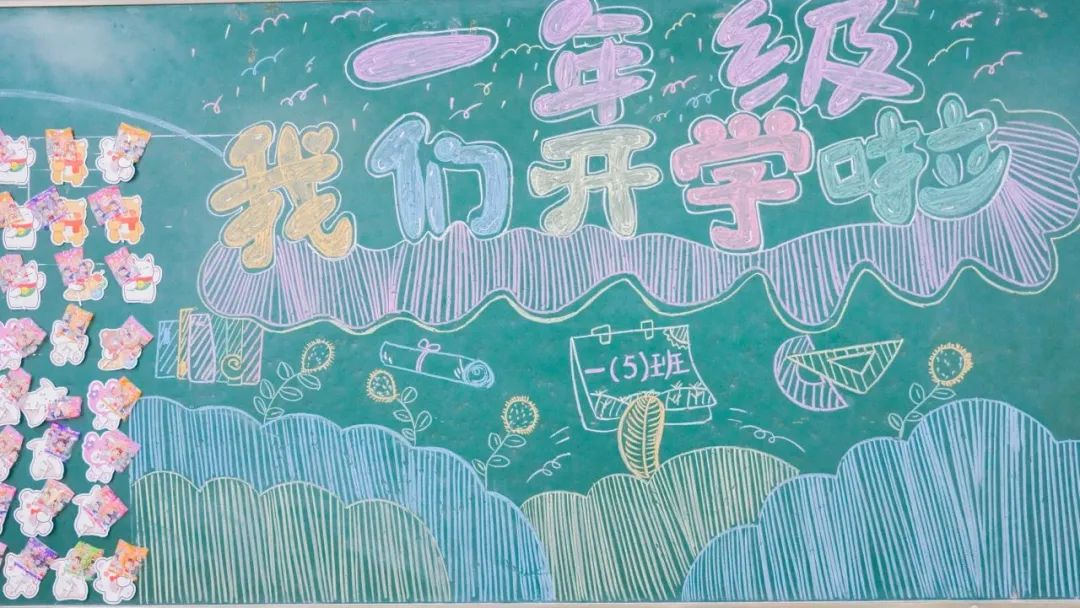 一年级
我们开学啦
一(5)班